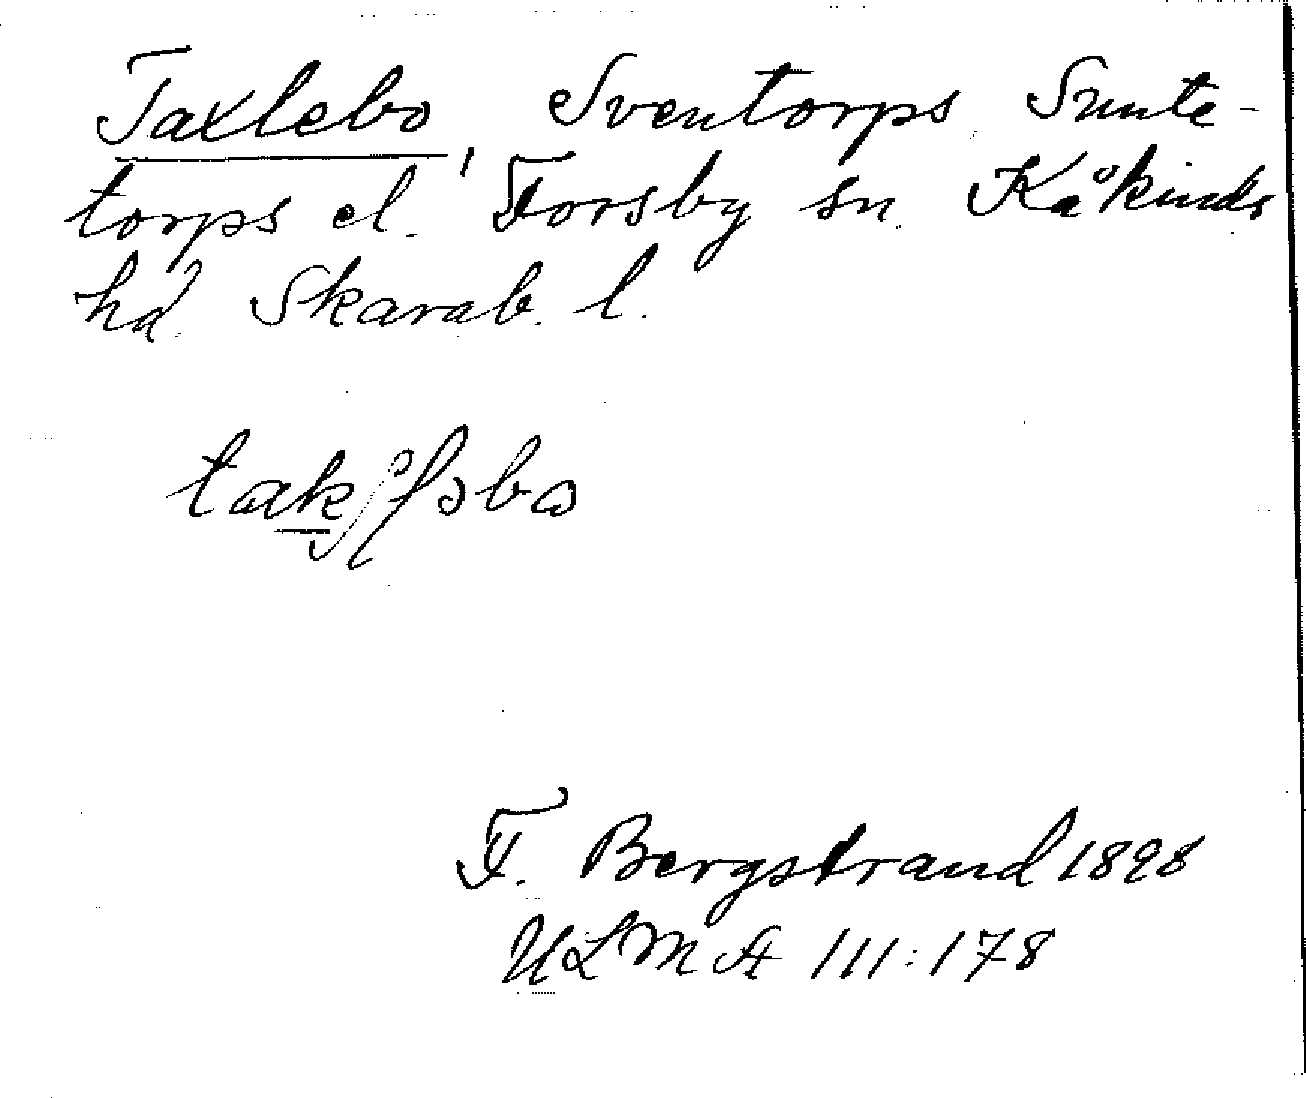 Taxlebo, Sventorps Sunte-
torps el. Forsby sn Kåkinds
hd. Skarab. l.
F. Bergstrand 1898
ULMA 111:178